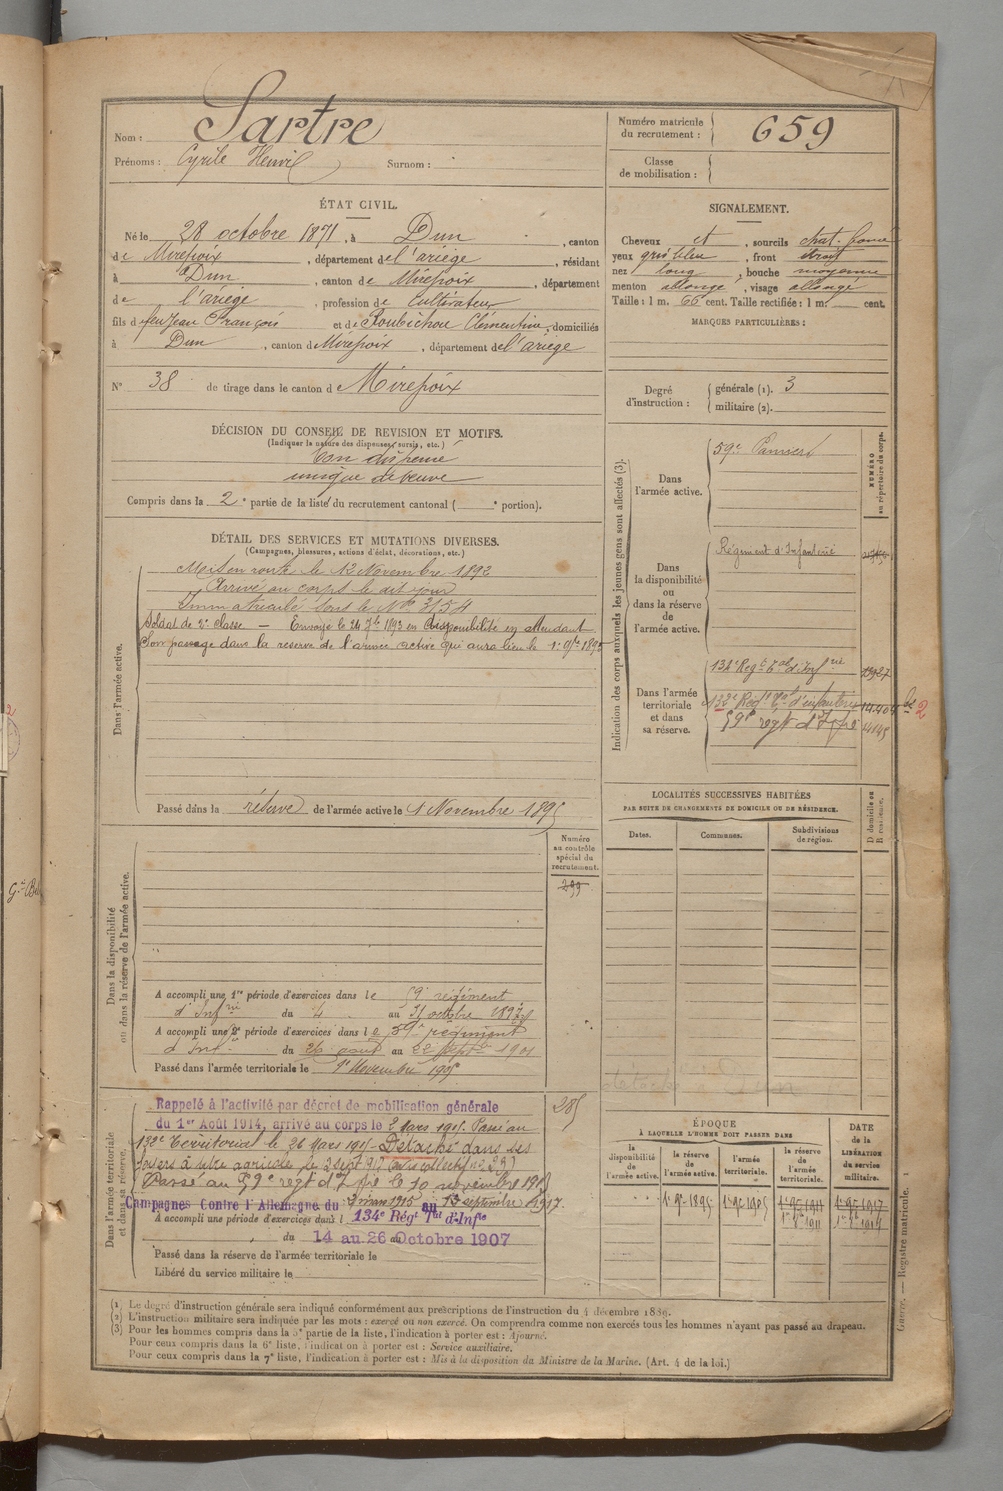 Nom : Sartre
Prénoms : Cyrile Henri Surnom :
Numéro matricule du recrutement : 659
Classe de mobilisation :
ÉTAT CIVIL.
Né le 28 octobre 1871, à Dun, canton
de Mirepoix, département de l'ariège, résidant
à Dun, canton de Mirepoix, département
de l'ariège, profession de Cultivateur
fils de feu Jean François et de Roubichou Clémentine, domiciliés
à Dun, canton de Mirepoix, département de l'ariège
N° 38 de tirage dans le canton de Mirepoix
DÉCISION DU CONSEIL DE REVISION ET MOTIFS.
(Indiquer la nature des dispenses, sursis, etc.)
Bon dispensé
unique de veuve
Compris dans la 2e partie de la liste du recrutement cantonal ( e portion).
DÉTAIL DES SERVICES ET MUTATIONS DIVERSES.
(Campagnes, blessures, actions d'éclat, décorations, etc.)
Dans l'armée active.
Mis en route le 12 Novembre 1892
Arrivé au corps le dit jour
Immatriculé sous le No 3154
Soldat de 2e classe — Envoyé le 24 7bre 1893 en disponibilité en attendant
Son passage dans la réserve de l'armée active qui aura lieu le 1er 9bre 1895
Passé dans la réserve de l'armée active le 1 Novembre 1895
Dans la disponibilité ou dans la réserve de l'armée active.
Numéro au contrôle spécial du recrutement.
299
A accompli une 1re période d'exercices dans le 59e régiment
d'Infrie du 4 au 31 octobre 1897
A accompli une 2e période d'exercices dans le 59e régiment
d'Inf du 26 août au 22 septbre 1901
Passé dans l'armée territoriale le 1er Novembre 1905
Dans l'armée territoriale et dans sa réserve.
Rappelé à l'activité par décret de mobilisation générale
du 1er Août 1914, arrivé au corps le 2 Mars 1915. Passé au
132e Territorial le 26 Mars 1915 - Détaché dans ses
foyers à titre agricole le 2 sept 1917
Passé au 59e regt d'Ifrie le 10 novembre 191
Campagnes Contre l'Allemagne du 2 mars 1915 au 13 septembre 1917.
A accompli une période d'exercices dans l 134e Régt Tal d'Infie
du 14 au 26 au Octobre 1907
Passé dans la réserve de l'armée territoriale le
Libéré du service militaire le
SIGNALEMENT.
Cheveux et, sourcils chat. foncé
yeux gris bleu, front étroit
nez long, bouche moyenne
menton allongé, visage allongé
Taille : 1 m. 66 cent. Taille rectifiée : 1 m. cent.
MARQUES PARTICULIÈRES :
Degré d'instruction : générale (1). 3
militaire (2).
Indication des corps auxquels les jeunes gens sont affectés (3).
NUMÉRO au répertoire du corps.
Dans l'armée active. 59e Pamiers
Dans la disponibilité ou dans la réserve de l'armée active. Régiment d'Infanterie
Dans l'armée territoriale et dans sa réserve.
134e Regt Tal d'Infrie
132e Régt Tal d'infanterie
59e régt d'Ifrie
LOCALITÉS SUCCESSIVES HABITÉES
PAR SUITE DE CHANGEMENTS DE DOMICILE OU DE RÉSIDENCE.
Dates. Communes. Subdivisions de région. D domicile ou R résidence.
ÉPOQUE
À LAQUELLE L'HOMME DOIT PASSER DANS
la disponibilité de l'armée active.
la réserve de l'armée active.
l'armée territoriale.
la réserve de l'armée territoriale.
DATE de la LIBÉRATION du service militaire.
1er 9bre 1895 1er 9bre 1905 1er 9bre 1911 1er 9bre 1917
285
(1) Le degré d'instruction générale sera indiqué conformément aux prescriptions de l'instruction du 4 décembre 1889.
(2) L'instruction militaire sera indiquée par les mots : exercé ou non exercé. On comprendra comme non exercés tous les hommes n'ayant pas passé au drapeau.
(3) Pour les hommes compris dans la 5e partie de la liste, l'indication à porter est : Ajourné.
Pour ceux compris dans la 6e liste, l'indication à porter est : Service auxiliaire.
Pour ceux compris dans la 7e liste, l'indication à porter est : Mis à la disposition du Ministre de la Marine. (Art. 4 de la loi.)
Guerre. — Registre matricule. 1